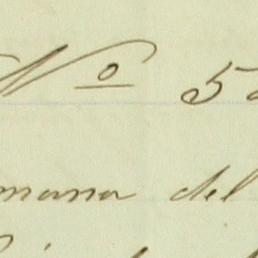 Nº 5
mana del